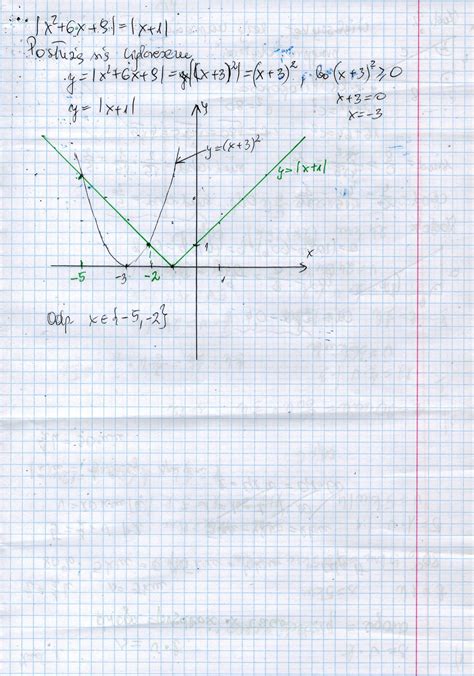 |x²+6x+9|=|x+1|
Posłużę się wykresem
y=|x²+6x+9|=|(x+3)²|=(x+3)², bo (x+3)²≥0
x+3=0
y=|x+1|
x=-3
y
y=(x+3)²
y=|x+1|
1
x
-5 -3 -2 1
Odp x∈{-5,-2}